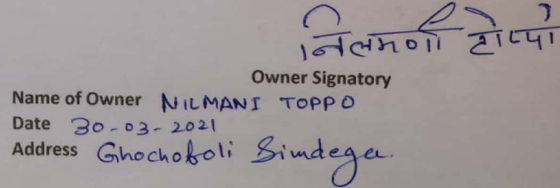 निलमणी टोप्पो
Owner Signatory
Name of Owner NILMANI TOPPO
Date 30-03-2021
Address Ghochotoli Simdega.